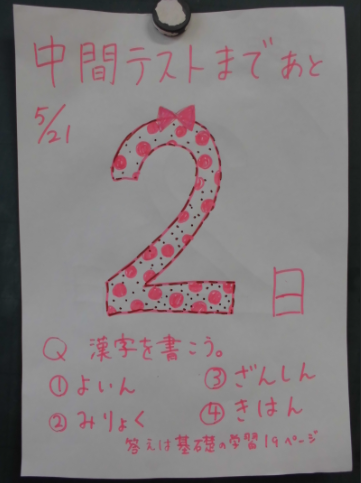 中間テストまであと
5/21
2日
Q 漢字を書こう。
①よいん
②みりょく
③ざんしん
④きはん
答えは基礎の学習19ページ